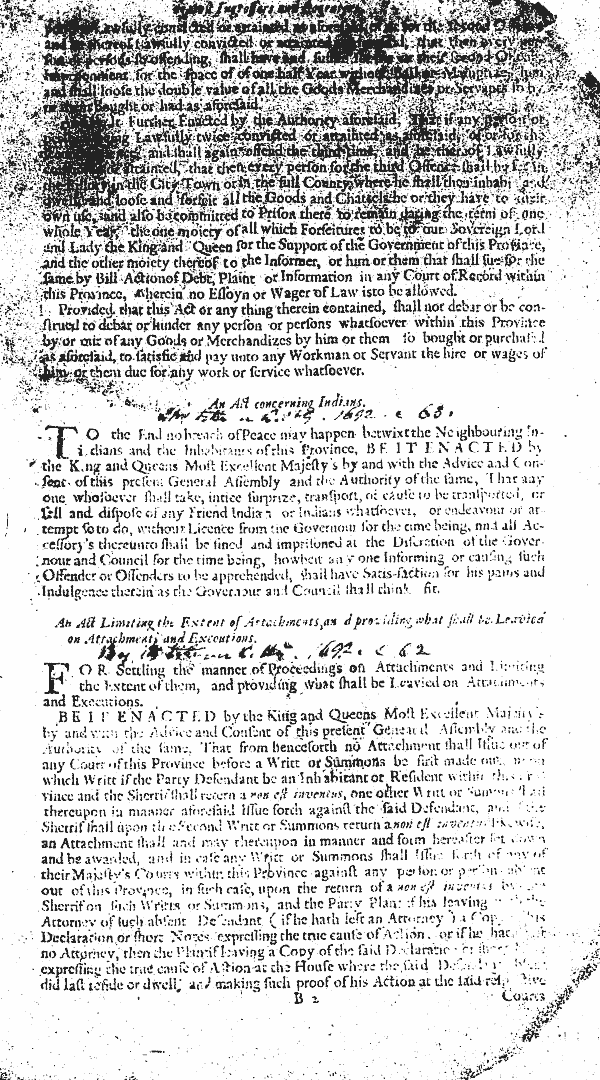 against Ingrossers and Regrators.
Lawfully convicted or attainted as aforesaid of or for the second Offence
and be thereof Lawfully convicted or attainted that then every per-
son or persons so offending, shall have and suffer for his or their second Offence
Imprisonment for the space of of one half Year without
and shall loose the double value of all the Goods Merchandizes or
bought or had as aforesaid.
Further Enacted by the Authority aforesaid, That if any person or
Lawfully twice convicted or attainted as aforesaid, of or for the
and shall again offend the third time, and be thereof Lawfully
attainted, that then every person for the third Offence shall be
in the City Town or in the full County where he shall then inhabit and
dwell and loose and forfeit all the Goods and Chattels he or they have to their
own use, and also be committed to Prison there to remain during the term of one
whole Year, the one moiety of all which Forfeitures to be to our Sovereign Lord
and Lady the King and Queen for the Support of the Government of this Province,
and the other moiety thereof to the Informer, or him or them that shall sue for the
same by Bill Action of Debt, Plaint or Information in any Court of Record within
this Province, wherein no Essoyn or Wager of Law is to be allowed.
Provided, that this Act or any thing therein contained, shall not debar or be con-
strued to debar or hinder any person or persons whatsoever within this Province
by or out of any Goods or Merchandizes by him or them so bought or purchased
as aforesaid, to satisfie and pay unto any Workman or Servant the hire or wages of
him or them due for any work or service whatsoever.
An Act concerning Indians.
1692. c 63.
TO the End no breach of Peace may happen betwixt the Neighbouring In-
dians and the Inhabitants of this Province, BE IT ENACTED by
the King and Queens Most Excellent Majesty's by and with the Advice and Con-
sent of this present General Assembly and the Authority of the same, That any
one whosoever shall take, intice surprize, transport, or cause to be transported, or
sell and dispose of any Friend Indian or Indians whatsoever, or endeavour or at-
tempt so to do, without Licence from the Governour for the time being, and all Ac-
cessory's thereunto shall be fined and imprisoned at the Discretion of the Gover-
nour and Council for the time being, howbeit any one Informing or causing such
Offender or Offenders to be apprehended, shall have Satis-faction for his pains and
Indulgence therein as the Governour and Council shall think fit.
An Act Limiting the Extent of Attachments, and providing what shall be Leavied
on Attachments and Executions.
1692. c 62
FOR Settling the manner of Proceedings on Attachments and Limiting
the Extent of them, and providing what shall be Leavied on Attachments
and Executions.
BE IT ENACTED by the King and Queens Most Excellent Majesty's
by and with the Advice and Consent of this present General Assembly and the
Authority of the same, That from henceforth no Attachment shall Issue out of
any Court of this Province before a Writt or Summons be first made out, upon
which Writt if the Party Defendant be an Inhabitant or Resident within this Pro-
vince and the Sheriff shall return a non est inventus, one other Writt or Summons shall
thereupon in manner aforesaid Issue forth against the said Defendant, and if the
Sheriff shall upon the Second Writt or Summons return a non est inventus likewise,
an Attachment shall and may thereupon in manner and form hereafter set down
and be awarded, and in case any Writt or Summons shall Issue forth of any of
their Majesty's Courts within this Province against any person or persons absent
out of this Province, in such case, upon the return of a non est inventus by the
Sheriff on such Writts or Summons, and the Party Plantiff leaving with the
Attorney of such absent Defendant (if he hath left an Attorney) a Copy of his
Declaration or short Notes expressing the true cause of Action, or if he hath left
no Attorney, then the Plantiff leaving a Copy of the said Declaration or
expressing the true cause of Action at the House where the said Defendant
did last reside or dwell, and making such proof of his Action at the said respective
B 2
Courts